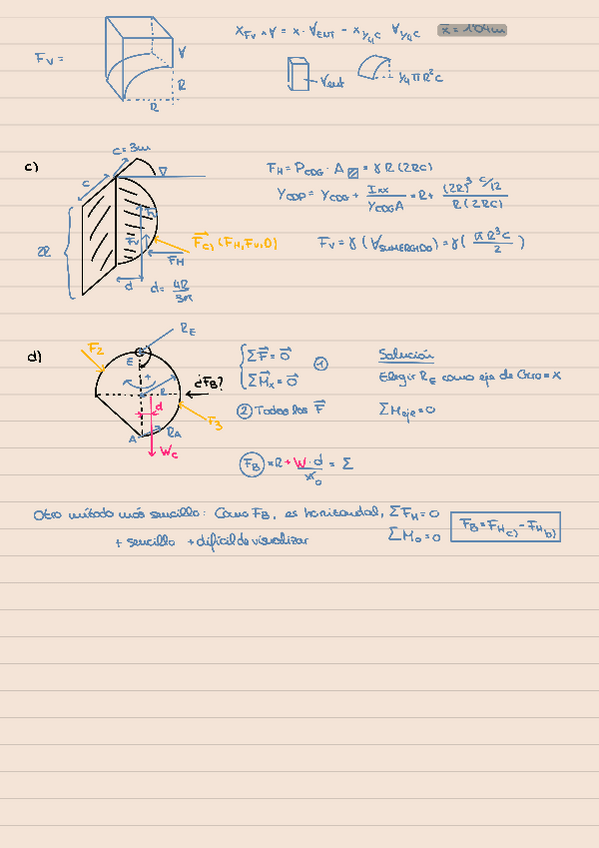 x_Fv · ∀ = x · ∀ENT - x_1/4C ∀_1/4C x = 1'04m
Fv =
∀
R
R
∀ent
1/4 πR²C
c)
C=3m
C
∇
2R
h
Fv
F_H
d
d = 4R/3π
F_C) (F_H, Fv, 0)
F_H = P_CDG · A = γ R (2RC)
Y_CDP = Y_CDG + Ixx / Y_CDG A = R + (2R)³ C/12 / R(2RC)
Fv = γ (∀SUMERGIDO) = γ ( πR³C / 2 )
d)
F2
R_E
E
+
R
¿FB?
d
F3
A
RA
Wc
ΣF = 0
ΣMx = 0
1
2 Todas las F
Solución
Elegir R_E como eje de Giro = x
ΣMeje = 0
FB × R + W · d = Σ
0
Otro método más sencillo: Como FB, es horizontal, ΣF_H = 0
+ sencillo + difícil de visualizar
ΣMo = 0
FB = F_Hc) - F_Hb)